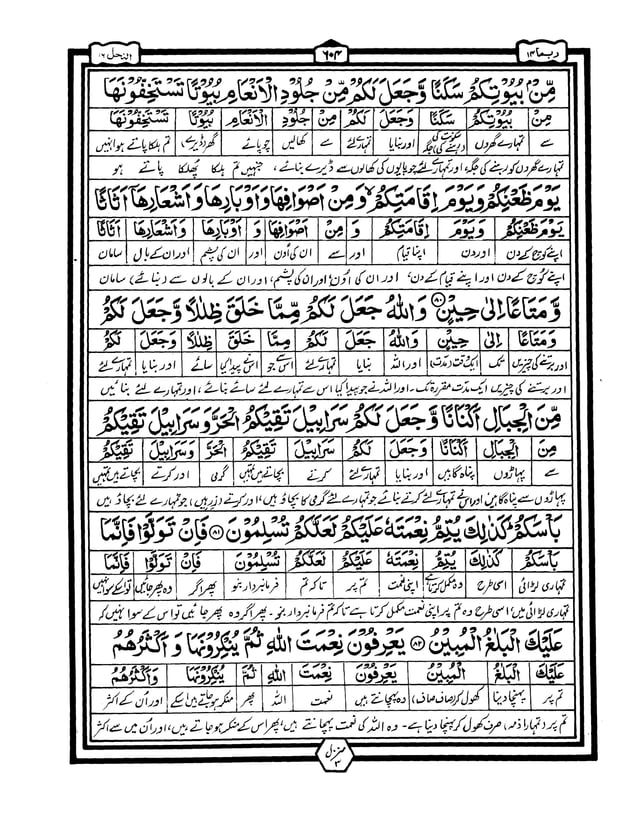 ربما ۱۴ ۶۰۴ النحل ۱۶
مِّنْۢ بُیُوْتِكُمْ سَكَنًا وَّجَعَلَ لَكُمْ مِّنْ جُلُوْدِ الْاَنْعَامِ بُیُوْتًا تَسْتَخِفُّوْنَهَا
مِنْ بُیُوْتِكُمْ سَكَنًا وَّجَعَلَ لَكُمْ مِّنْ جُلُوْدِ الْاَنْعَامِ بُیُوْتًا تَسْتَخِفُّوْنَهَا
سے تمہارے گھروں سکونت کی رہنے کی جگہ اور بنایا تمہارے لئے سے کھالیں چوپائے گھر (ڈیرے) تم ہلکا پاتے ہو انہیں
تمہارے گھروں کو رہنے کی جگہ اور تمہارے لئے چوپایوں کی کھالوں سے ڈیرے بنائے، جنہیں تم ہلکا پھلکا پاتے ہو
یَوْمَ ظَعْنِكُمْ وَیَوْمَ اِقَامَتِكُمْ وَمِنْ اَصْوَافِهَا وَاَوْبَارِهَا وَاَشْعَارِهَاۤ اَثَاثًا
یَوْمَ ظَعْنِكُمْ وَیَوْمَ اِقَامَتِكُمْ وَ مِنْ اَصْوَافِهَا وَ اَوْبَارِهَا وَاَشْعَارِهَا اَثَاثًا
اپنے کوچ کے دن اور دن اپنا قیام اور سے ان کی اُون اور ان کی پشم اور ان کے بال سامان
اپنے کوچ کے دن اور اپنے قیام کے دن، اور ان کی اُون، اور ان کی پشم، اور ان کے بالوں سے (بنائے) سامان
وَّمَتَاعًا اِلٰی حِیْنٍ ۸۰ وَاللّٰهُ جَعَلَ لَكُمْ مِّمَّا خَلَقَ ظِلٰلًا وَّجَعَلَ لَكُمْ
وَّمَتَاعًا اِلٰی حِیْنٍ وَاللّٰهُ جَعَلَ لَكُمْ مِّمَّا خَلَقَ ظِلٰلًا وَّجَعَلَ لَكُمْ
اور برتنے کی چیزیں تک ایک وقت (مدت) اور اللہ بنایا تمہارے لئے اس جو اس نے پیدا کیا سائے اور بنایا تمہارے لئے
اور برتنے کی چیزیں ایک مدت مقررہ تک۔ اور اللہ نے جو پیدا کیا اس سے تمہارے لئے سائے بنائے، اور تمہارے لئے بنائیں
مِّنَ الْجِبَالِ اَكْنَانًا وَّجَعَلَ لَكُمْ سَرَابِیْلَ تَقِیْكُمُ الْحَرَّ وَسَرَابِیْلَ تَقِیْكُمْ
مِّنَ الْجِبَالِ اَكْنَانًا وَّجَعَلَ لَكُمْ سَرَابِیْلَ تَقِیْكُمُ الْحَرَّ وَسَرَابِیْلَ تَقِیْكُمْ
سے پہاڑوں پناہ گاہیں اور بنایا تمہارے لئے کرتے بچاتے ہیں تمہیں گرمی اور کرتے بچاتے ہیں تمہیں
پہاڑوں سے پناہ گاہیں اور اس نے تمہارے لئے کرتے بنائے جو تمہارے لئے گرمی کا بچاؤ ہیں، اور کرتے (زرہیں) جو تمہارے لئے بچاؤ ہیں
بَاْسَكُمْ كَذٰلِكَ یُتِمُّ نِعْمَتَهٗ عَلَیْكُمْ لَعَلَّكُمْ تُسْلِمُوْنَ ۸۱ فَاِنْ تَوَلَّوْا فَاِنَّمَا
بَاْسَكُمْ كَذٰلِكَ یُتِمُّ نِعْمَتَهٗ عَلَیْكُمْ لَعَلَّكُمْ تُسْلِمُوْنَ فَاِنْ تَوَلَّوْا فَاِنَّمَا
تمہاری لڑائی اسی طرح وہ مکمل کرتا ہے اپنی نعمت تم پر تاکہ تم فرمانبردار بنو پھر اگر وہ پھر جائیں تو اسکے سوا نہیں
تمہاری لڑائی میں، اسی طرح وہ تم پر اپنی نعمت مکمل کرتا ہے تاکہ تم فرمانبردار بنو۔ پھر اگر وہ پھر جائیں تو اس کے سوا نہیں کہ
عَلَیْكَ الْبَلٰغُ الْمُبِیْنُ ۸۲ یَعْرِفُوْنَ نِعْمَتَ اللّٰهِ ثُمَّ یُنْكِرُوْنَهَا وَ اَكْثَرُهُمُ
عَلَیْكَ الْبَلٰغُ الْمُبِیْنُ یَعْرِفُوْنَ نِعْمَتَ اللّٰهِ ثُمَّ یُنْكِرُوْنَهَا وَاَكْثَرُهُمُ
تم پر پہنچا دینا کھول کر (صاف صاف) وہ پہچانتے ہیں نعمت اللہ پھر منکر ہو جاتے ہیں اسکے اور اُن کے اکثر
تم پر (تمہارا ذمہ) صرف کھول کر پہنچا دینا ہے۔ وہ اللہ کی نعمت پہچانتے ہیں، پھر اس کے منکر ہو جاتے ہیں، اور اُن میں سے اکثر
منزل ۳